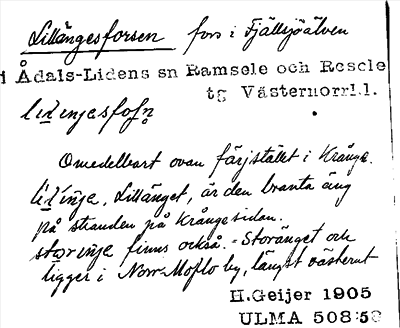 Lillängesforsen fors i Fjällsjöälven
i Ådals-Lidens sn Ramsele och Resele
tg Västernorrl.l.
Omedelbart ovan färjstället i Krånge.
Lillänget, är den branta äng
på stranden på Krångesidan.
finns också. - Storänget och
ligger i Norr-Moflo by, längst västerut
H.Geijer 1905
ULMA 508:58